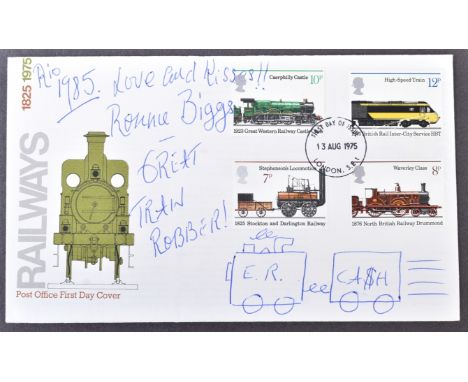 RAILWAYS 1825 1975
Rio
1985. Love and Kisses!!
Ronnie Biggs
—
GREAT
TRAIN
ROBBER!
Caerphilly Castle
10P
1923 Great Western Railway Castle
High-Speed Train
12P
British Rail Inter-City Service HST
FIRST DAY OF ISSUE
13 AUG 1975
LONDON, S.E.1
Stephenson's Locomotion
7P
1825 Stockton and Darlington Railway
Waverley Class
8P
1876 North British Railway Drummond
E.R.
CA$H
Post Office First Day Cover